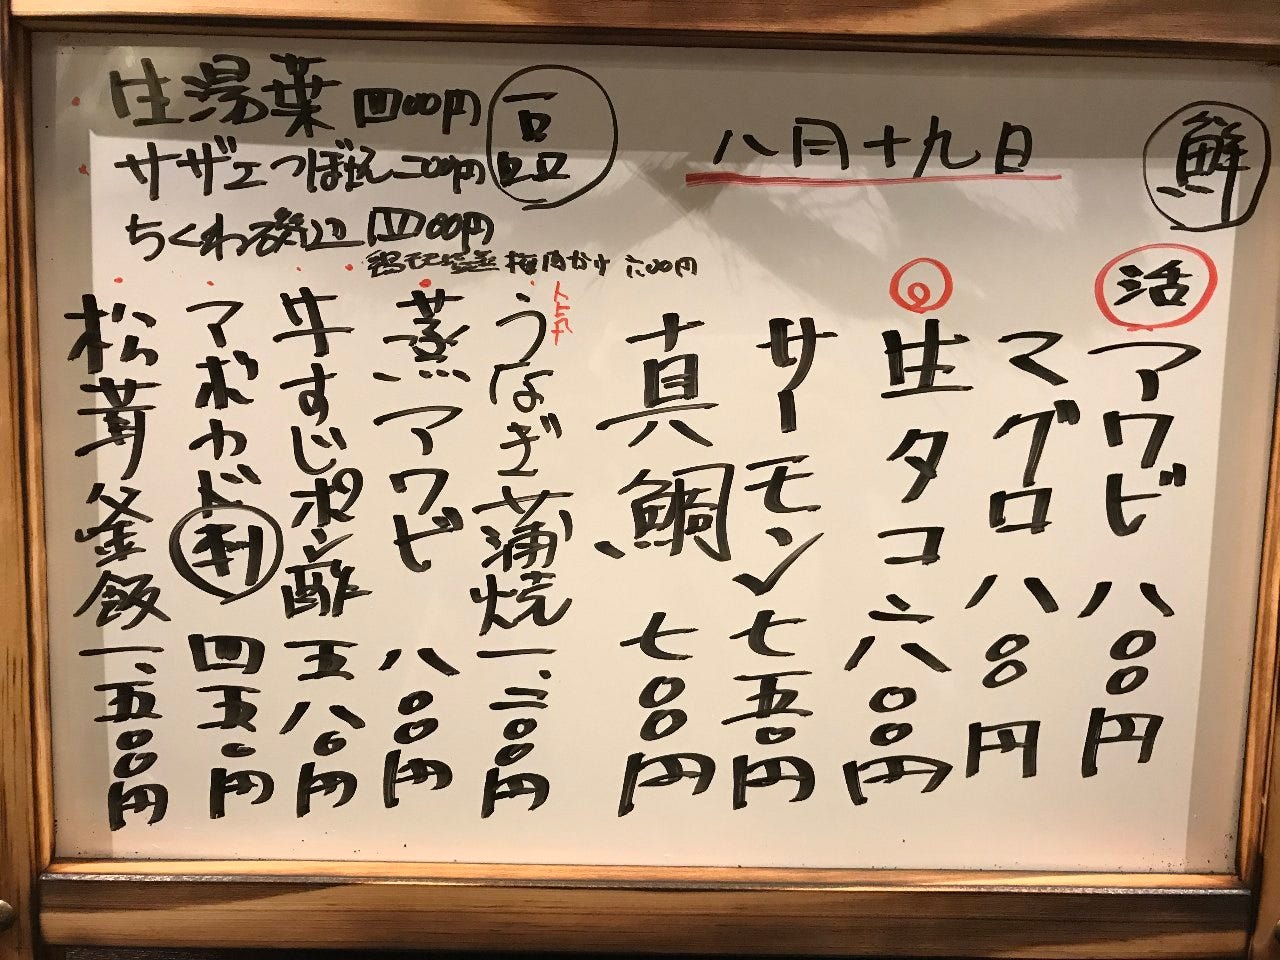 鮮
八月十九日
活 アワビ 八〇〇円
マグロ 八〇〇円
生タコ 六〇〇円
サーモン 七五〇円
真鯛 七〇〇円
うなぎ蒲焼 一、二〇〇円
蒸アワビ 八〇〇円
牛すじポン酢 五八〇円
アボカド刺 四五〇円
松茸釜飯 一、五〇〇円
生湯葉 四〇〇円
サザエつぼ 二〇〇円
ちくわ磯辺 四〇〇円
梅肉かけ 六〇〇円